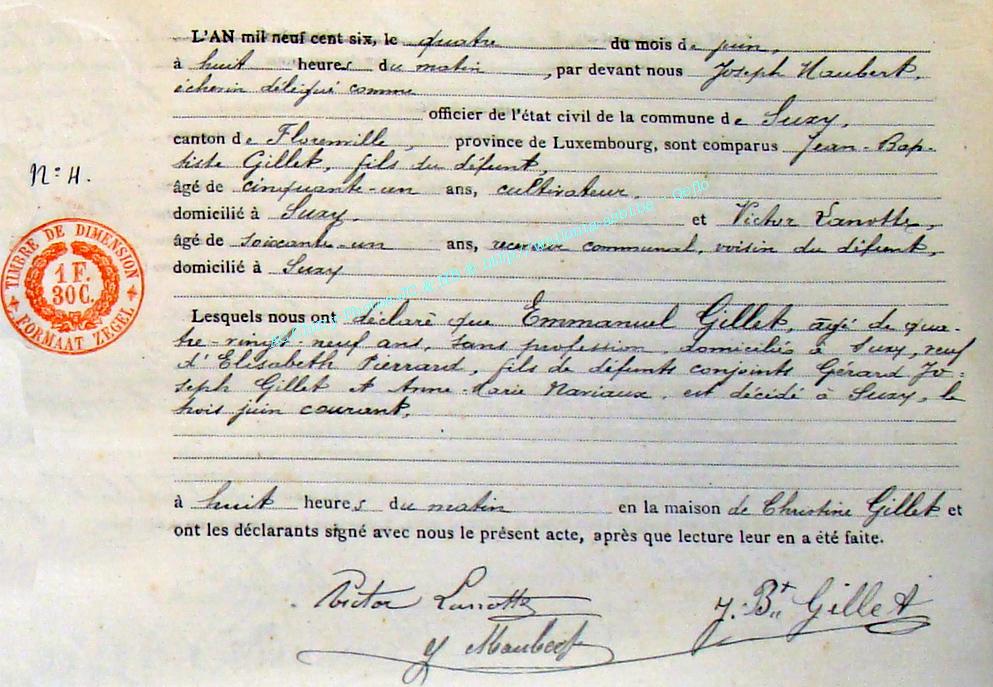 L'AN mil neuf cent six, le quatre du mois de juin,
à huit heures du matin, par devant nous Joseph Maubert,
échevin délégué comme
officier de l'état civil de la commune de Suxy,
canton de Florenville, province de Luxembourg, sont comparus Jean-Bap-
tiste Gillet, fils du défunt,
âgé de cinquante-un ans, cultivateur,
N° 4.
domicilié à Suxy, et Victor Lanotte,
âgé de soixante-un ans, receveur communal, voisin du défunt,
domicilié à Suxy
TIMBRE DE DIMENSION
1 F.
30 C.
FORMAAT ZEGEL
Lesquels nous ont déclaré que Emmanuel Gillet, âgé de qua-
tre-vingt-neuf ans, sans profession, domicilié à Suxy, veuf
d'Elisabeth Pierrard, fils de défunts conjoints Gérard Jo-
seph Gillet et Anne-Marie Mariaux, est décédé à Suxy, le
trois juin courant,
à huit heures du matin en la maison de Christine Gillet et
ont les déclarants signé avec nous le présent acte, après que lecture leur en a été faite.
Victor Lanotte
J. Bte Gillet
J Maubert